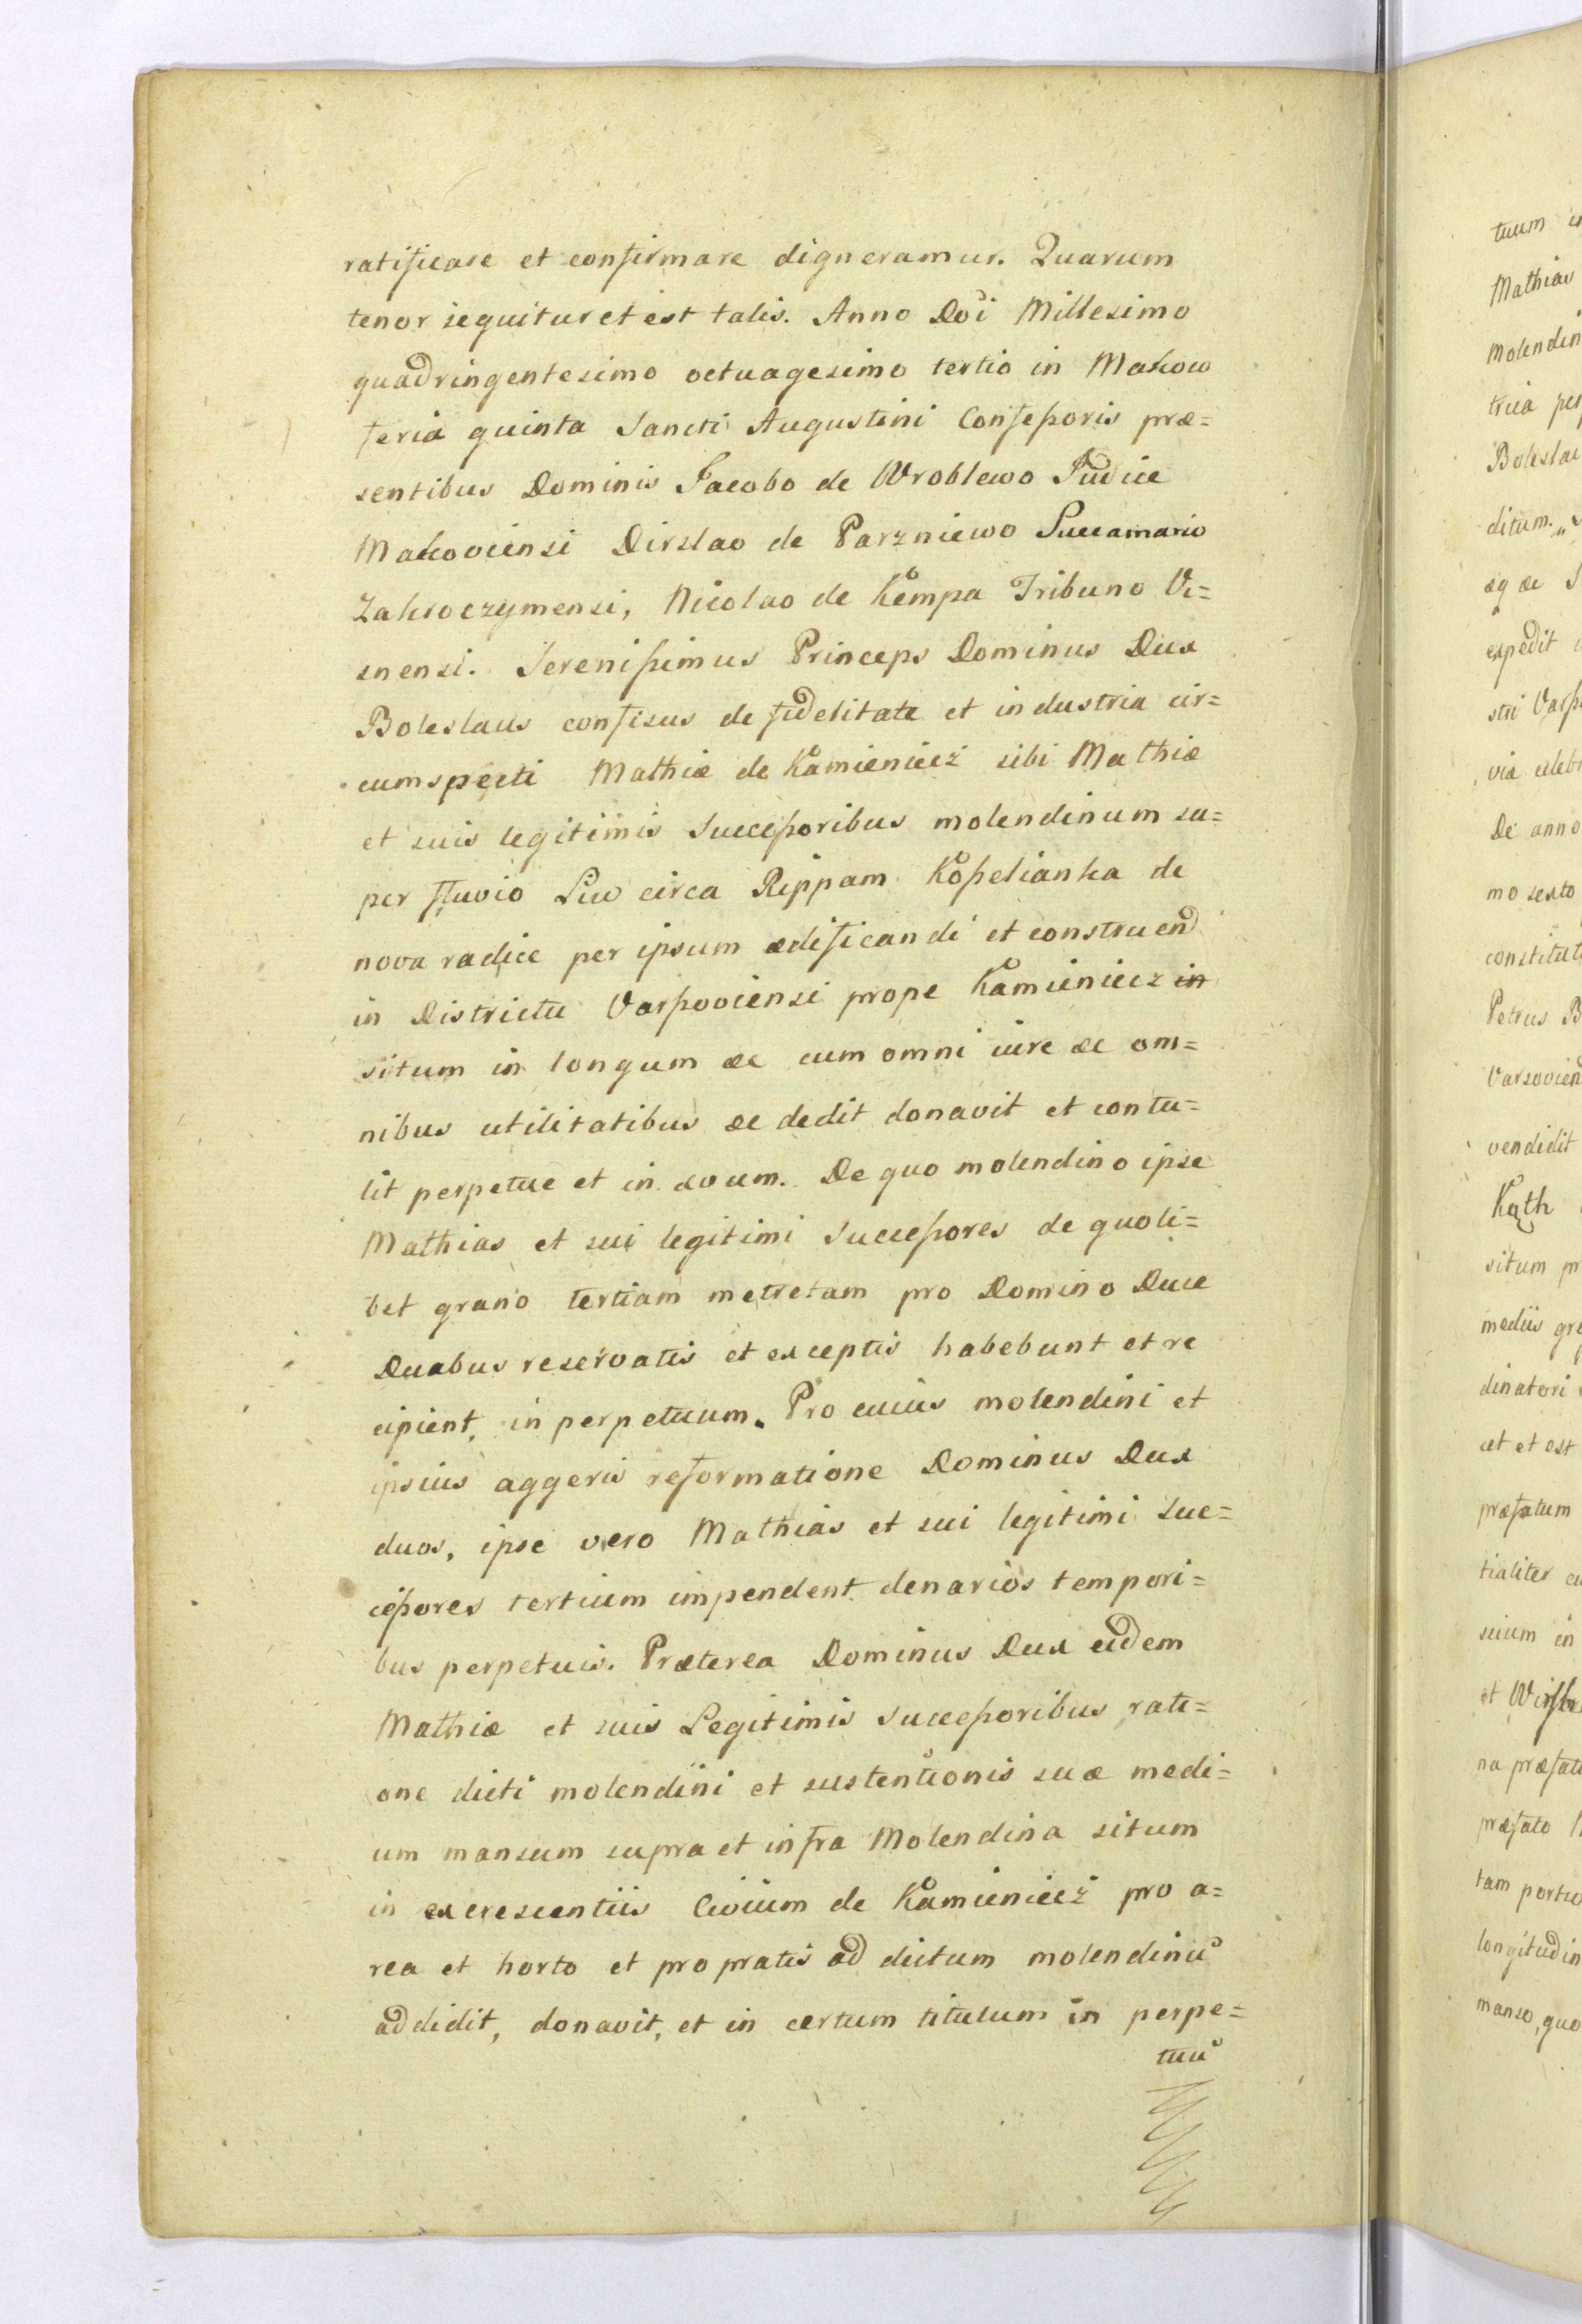 ratificare et confirmare digneramur. Quarum
tenor sequitur et est talis. Anno Dn̄i Millesimo
quadringentesimo octuagesimo tertio in Makow
feria quinta Sancti Augustini Confeßoris præ=
sentibus Dominis Jacobo de Wroblewo Judice
Makoviensi Dirslao de Parzniewo Succamario
Zakroczymensi, Nicolao de Kempa Tribuno Vi=
snensi. Serenißimus Princeps Dominus Dux
Boleslaus confisus de fidelitate et industria cir=
cumspecti Mathiæ de Kamieniecz sibi Mathiæ
et suis legitimis Succeßoribus molendinum su=
per fluvio Liw circa Rippam Koßelianka de
nova radice per ipsum ædificandi et construend
in Districtu Varßoviensi prope Kamieniecz in
situm in longum ac cum omni iure ac om=
nibus utilitatibus ac dedit donavit et contu=
lit perpetue et in ævum. De quo molendino ipse
Mathias et sui legitimi Succeßores de quoli=
bet grano tertiam metretam pro Domino Duce
Duabus reservatis et exceptis habebunt et re
cipient, in perpetuum. Pro cuius molendini et
ipsius aggeris reformatione Dominus Dux
duos, ipse vero Mathias et sui legitimi Suc=
ceßores tertium impendent denarios tempori=
bus perpetuis. Præterea Dominus Dux eidem
Mathiæ et suis Legitimis Succeßoribus rati=
one dicti molendini et sustentionis suæ medi=
um mansum supra et infra Molendina situm
in excrescentiis Civium de Kamieniecz pro a=
rea et horto et pro pratis ad dictum molendinū
addidit, donavit, et in certum titulum in perpe=
tuū
tuum
Mathias
Molendin
Boleslai
ditum.
expedit
De anno
mo sexto
constitut
Petrus B
Varsovien
vendidit
Kąth
situm
mediis
dinatori
et et est
præfatum
tialiter
suium in
præfato
tam
longitudin
manso, quo